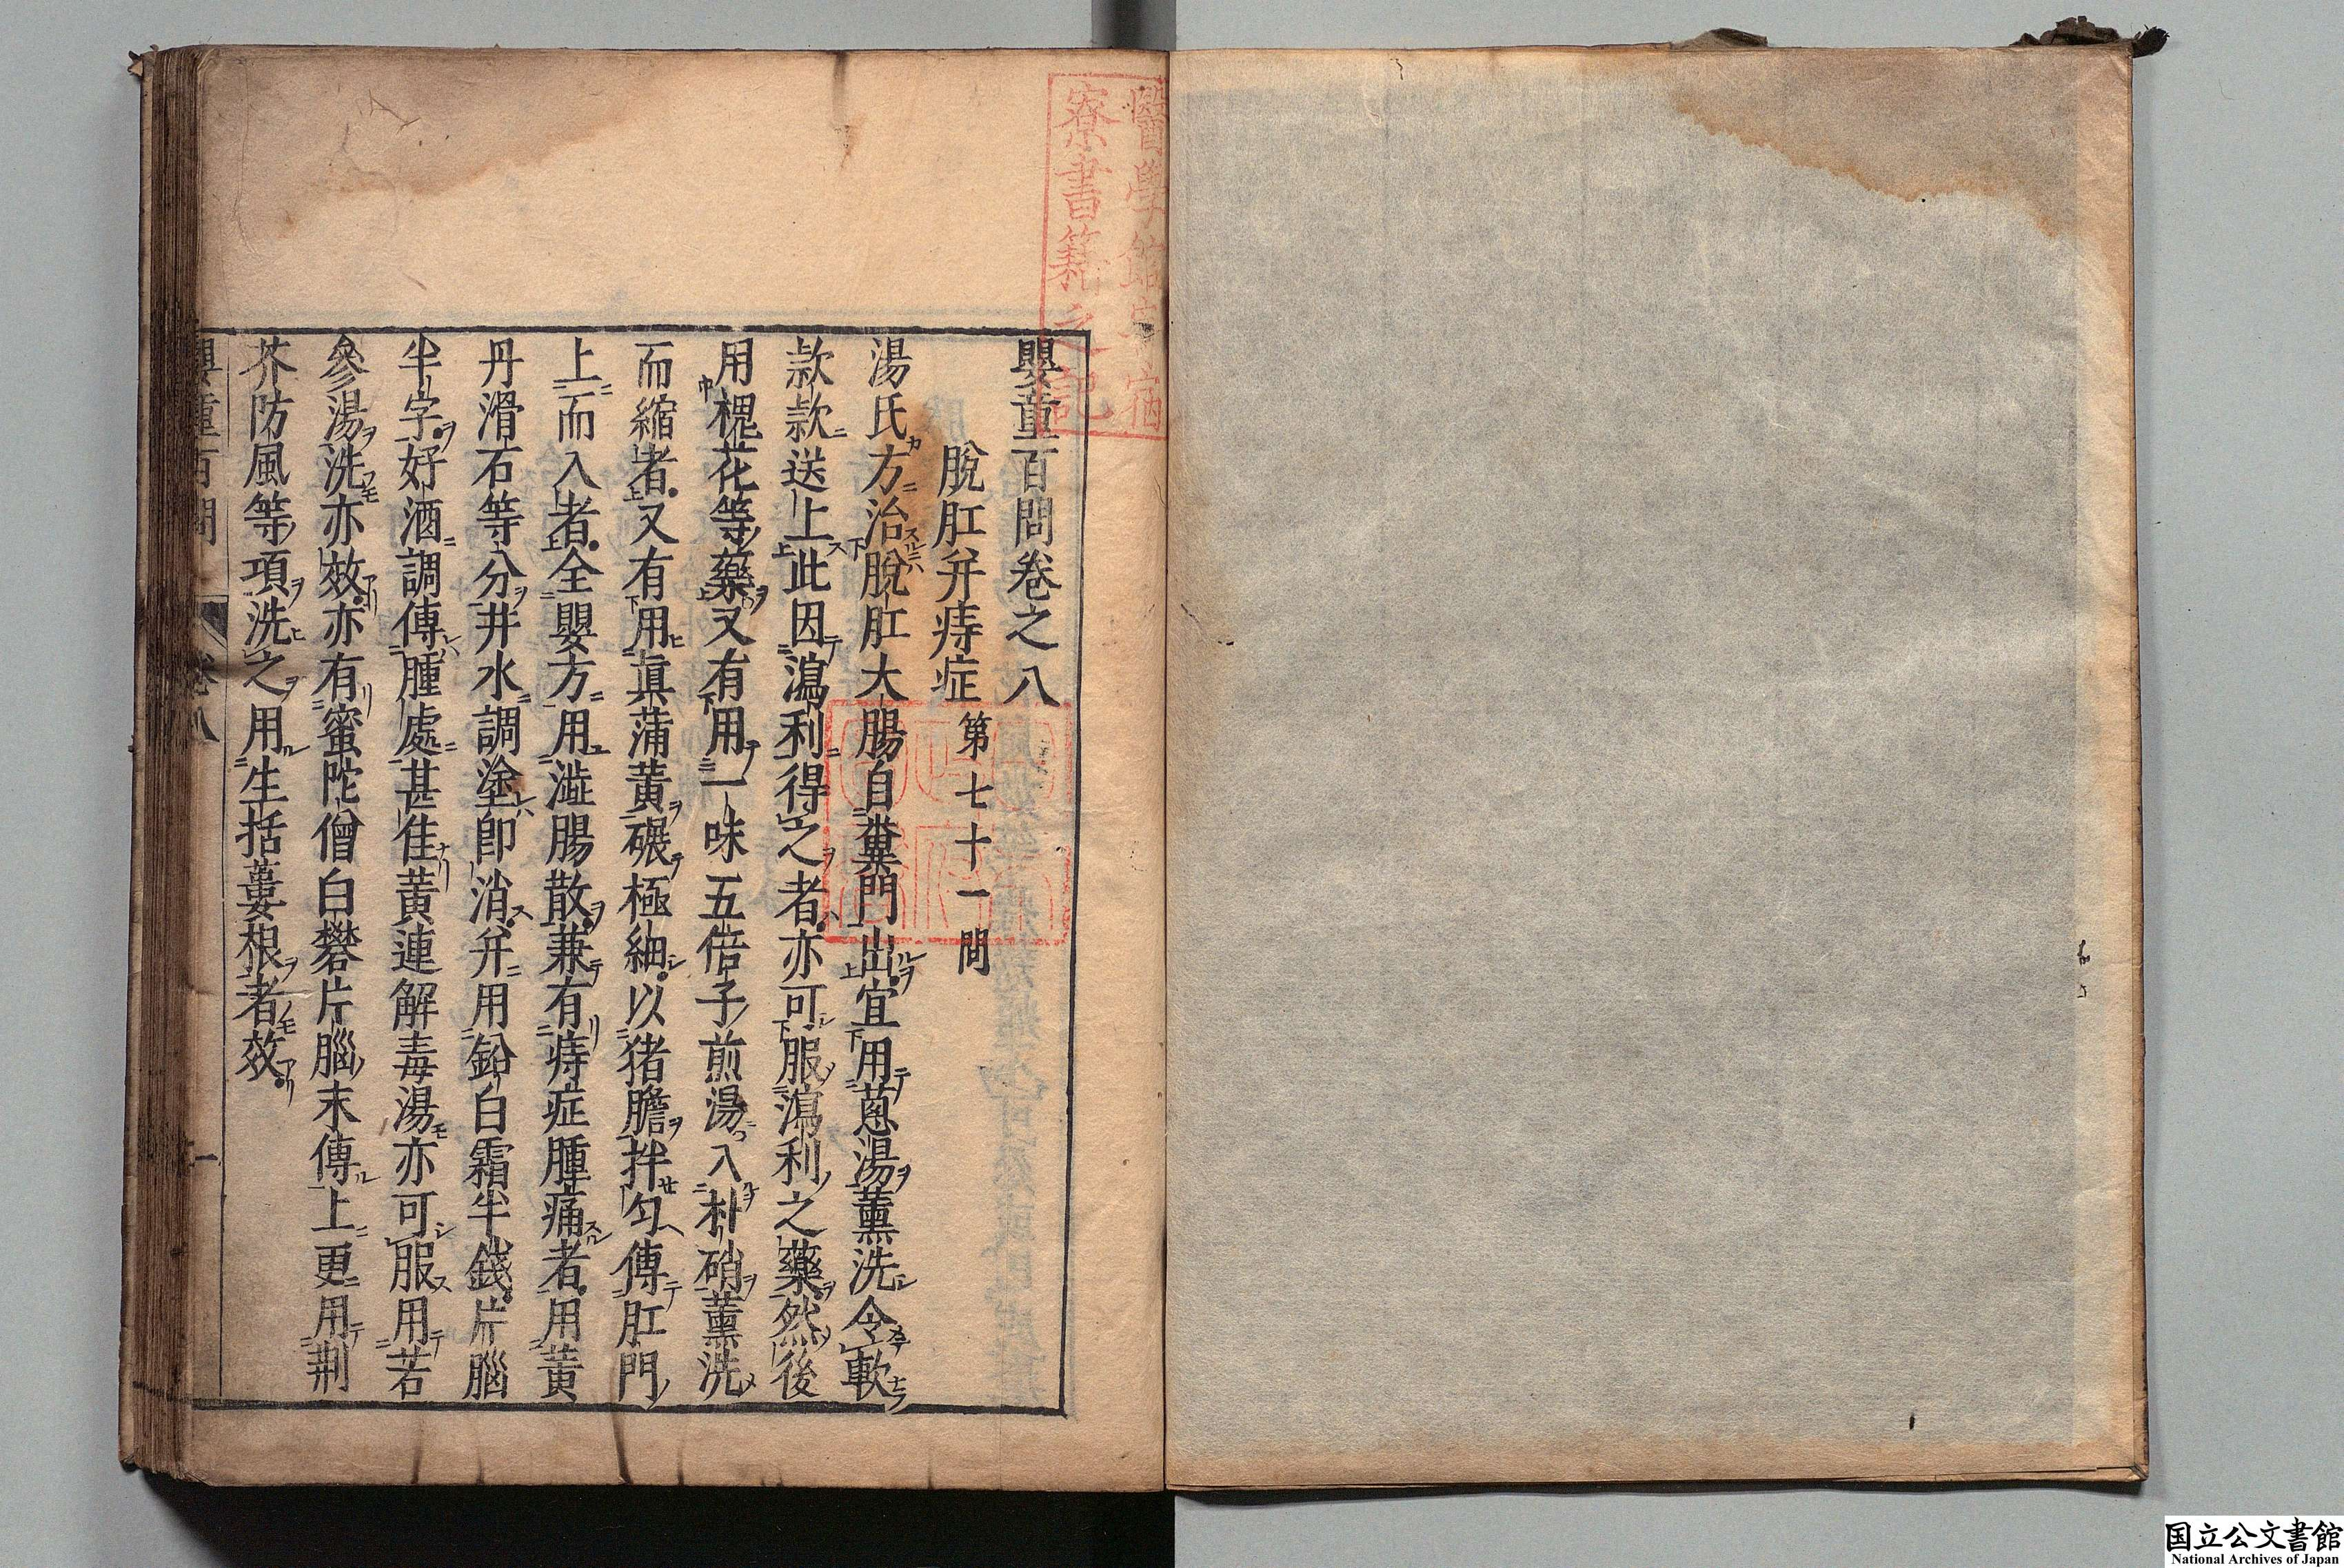 嬰童百問卷之八
脫肛并痔症 第七十一問
湯氏方治脫肛大腸自糞門出宜用蔥湯薰洗令軟
款款送上此因瀉利得之者亦可服瀉利之藥然後
用槐花等藥又有用一味五倍子煎湯入朴硝薰洗
而縮者又有用真蒲黃碾極細以猪膽拌勻傅肛門
上而入者全嬰方用澁腸散兼有痔症腫痛者用黃
丹滑石等分井水調塗即消并用鉛白霜半錢片腦
半字好酒調傅腫處甚佳黃連解毒湯亦可服用苦
參湯洗亦效亦有蜜陀僧白礬片腦末傅上更用荆
芥防風等項洗之用生括蔞根者效
嬰童百問 卷八 一
醫學館
寮書籍之記
国立公文書館
National Archives of Japan